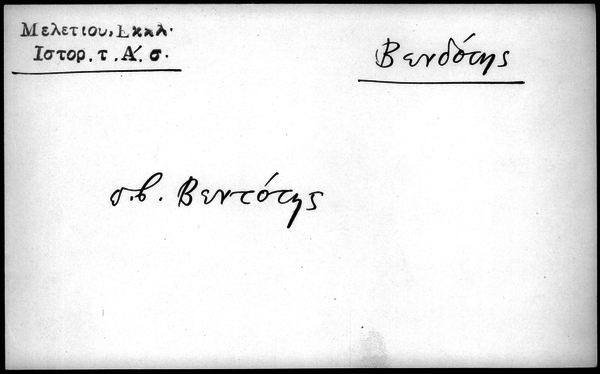 Μελετίου, Εκκλ.
Ιστορ. τ. Α΄. σ.
Βενδότης
σ.β. Βεντότης